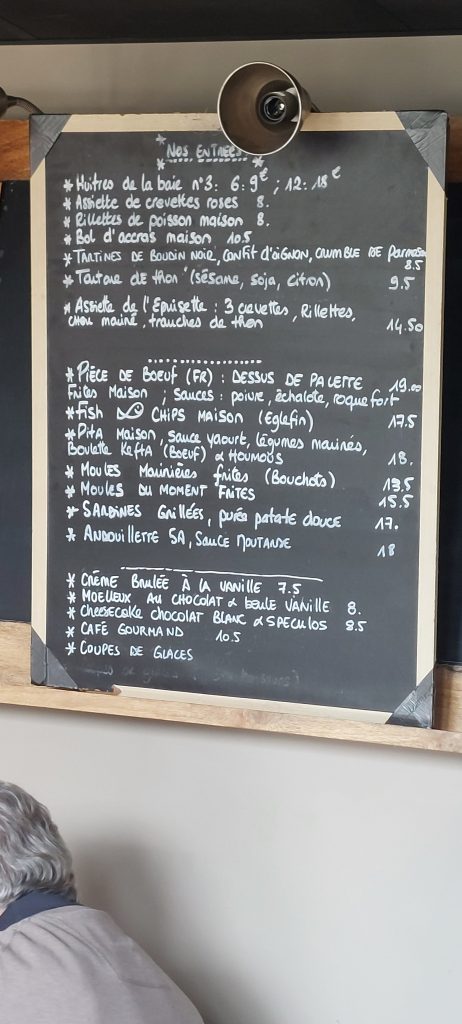 * NOS ENTRÉES *
* Huîtres de la baie n°3: 6: 9€ ; 12: 18€
* Assiette de crevettes roses 8.
* Rillettes de poisson maison 8.
* Bol d'accras maison 10.5
* TARTINES DE BOUDIN NOIR, CONFIT d'OIGNON, CRUMBLE DE Parmesan 8.5
* Tartare de thon (sésame, soja, citron) 9.5
* Assiette de l'Epuisette : 3 crevettes, Rillettes,
chou mariné, tranches de thon 14.50
* PIÈCE DE BOEUF (FR) : DESSUS DE PALETTE 19.00
Frites Maison ; Sauces : poivre, échalote, roquefort
* Fish CHIPS MAISON (Eglefin) 17.5
* Pita Maison, sauce yaourt, légumes marinés,
Boulette Kefta (BOEUF) & HOUMOUS 18.
* MOULES Marinières frites (Bouchots) 13.5
* MOULES DU MOMENT FRITES 15.5
* SARDINES Grillées, purée patate douce 17.
* ANDOUILLETTE 5A, SAUCE MOUTARDE 18
* CRÈME BRULÉE À LA VANILLE 7.5
* MOELLEUX AU CHOCOLAT & boule VANILLE 8.
* Cheesecake chocolat BLANC & SPECULOS 8.5
* CAFÉ GOURMAND 10.5
* COUPES DE GLACES